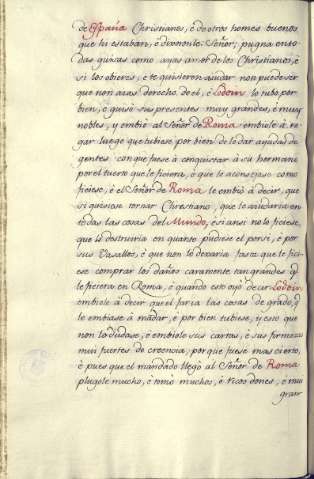 de España Christianos, é de otros homes buenos
que ti estaban, é dixeronte Señor; pugna en to-
das guisas como ayas amor de los Christianos, é
si los obieres, e te quisieren aiudar non puede ser
que non aias derecho de el, é Lodoin lo tubo por
bien, é guisó sus presentes muy grandes, é muy
nobles, y embió al Señor de Roma embiole á ro-
gar luego que tubiese por bien de lo dar ayudas de
gentes con que fuese à conquistar à su hermano
por el tuerto que le ficiera, é que le aconsejase como
ficiese, é el Señor de Roma le embió à decir, que
si quisiese tornar Chrestiano, que le aiudaria en
todas las cosas del Mundo, é si ansi no lo ficiese,
que lo destruiria en quanto pudiese el por si, é por
sus Vasallos, é que non lo dexaria fasta que le fici-
ese comprar los daños caramente tan grandes q.e
le ficiera en Roma, é quando esto oyó decir Lodoin
embiole à decir que el faria las cosas de grado, q.e
le embiase à mãdar, e por bien tubiese, y esto que
non lo dudase, é embiole sus cartas, é sus firmezas
mui fuertes de creencia, por que fuese mas cierto,
é pues que el mandado llegó al Señor de Roma
plugole mucho, é tomó muchos, é ricos dones, é mui
gran